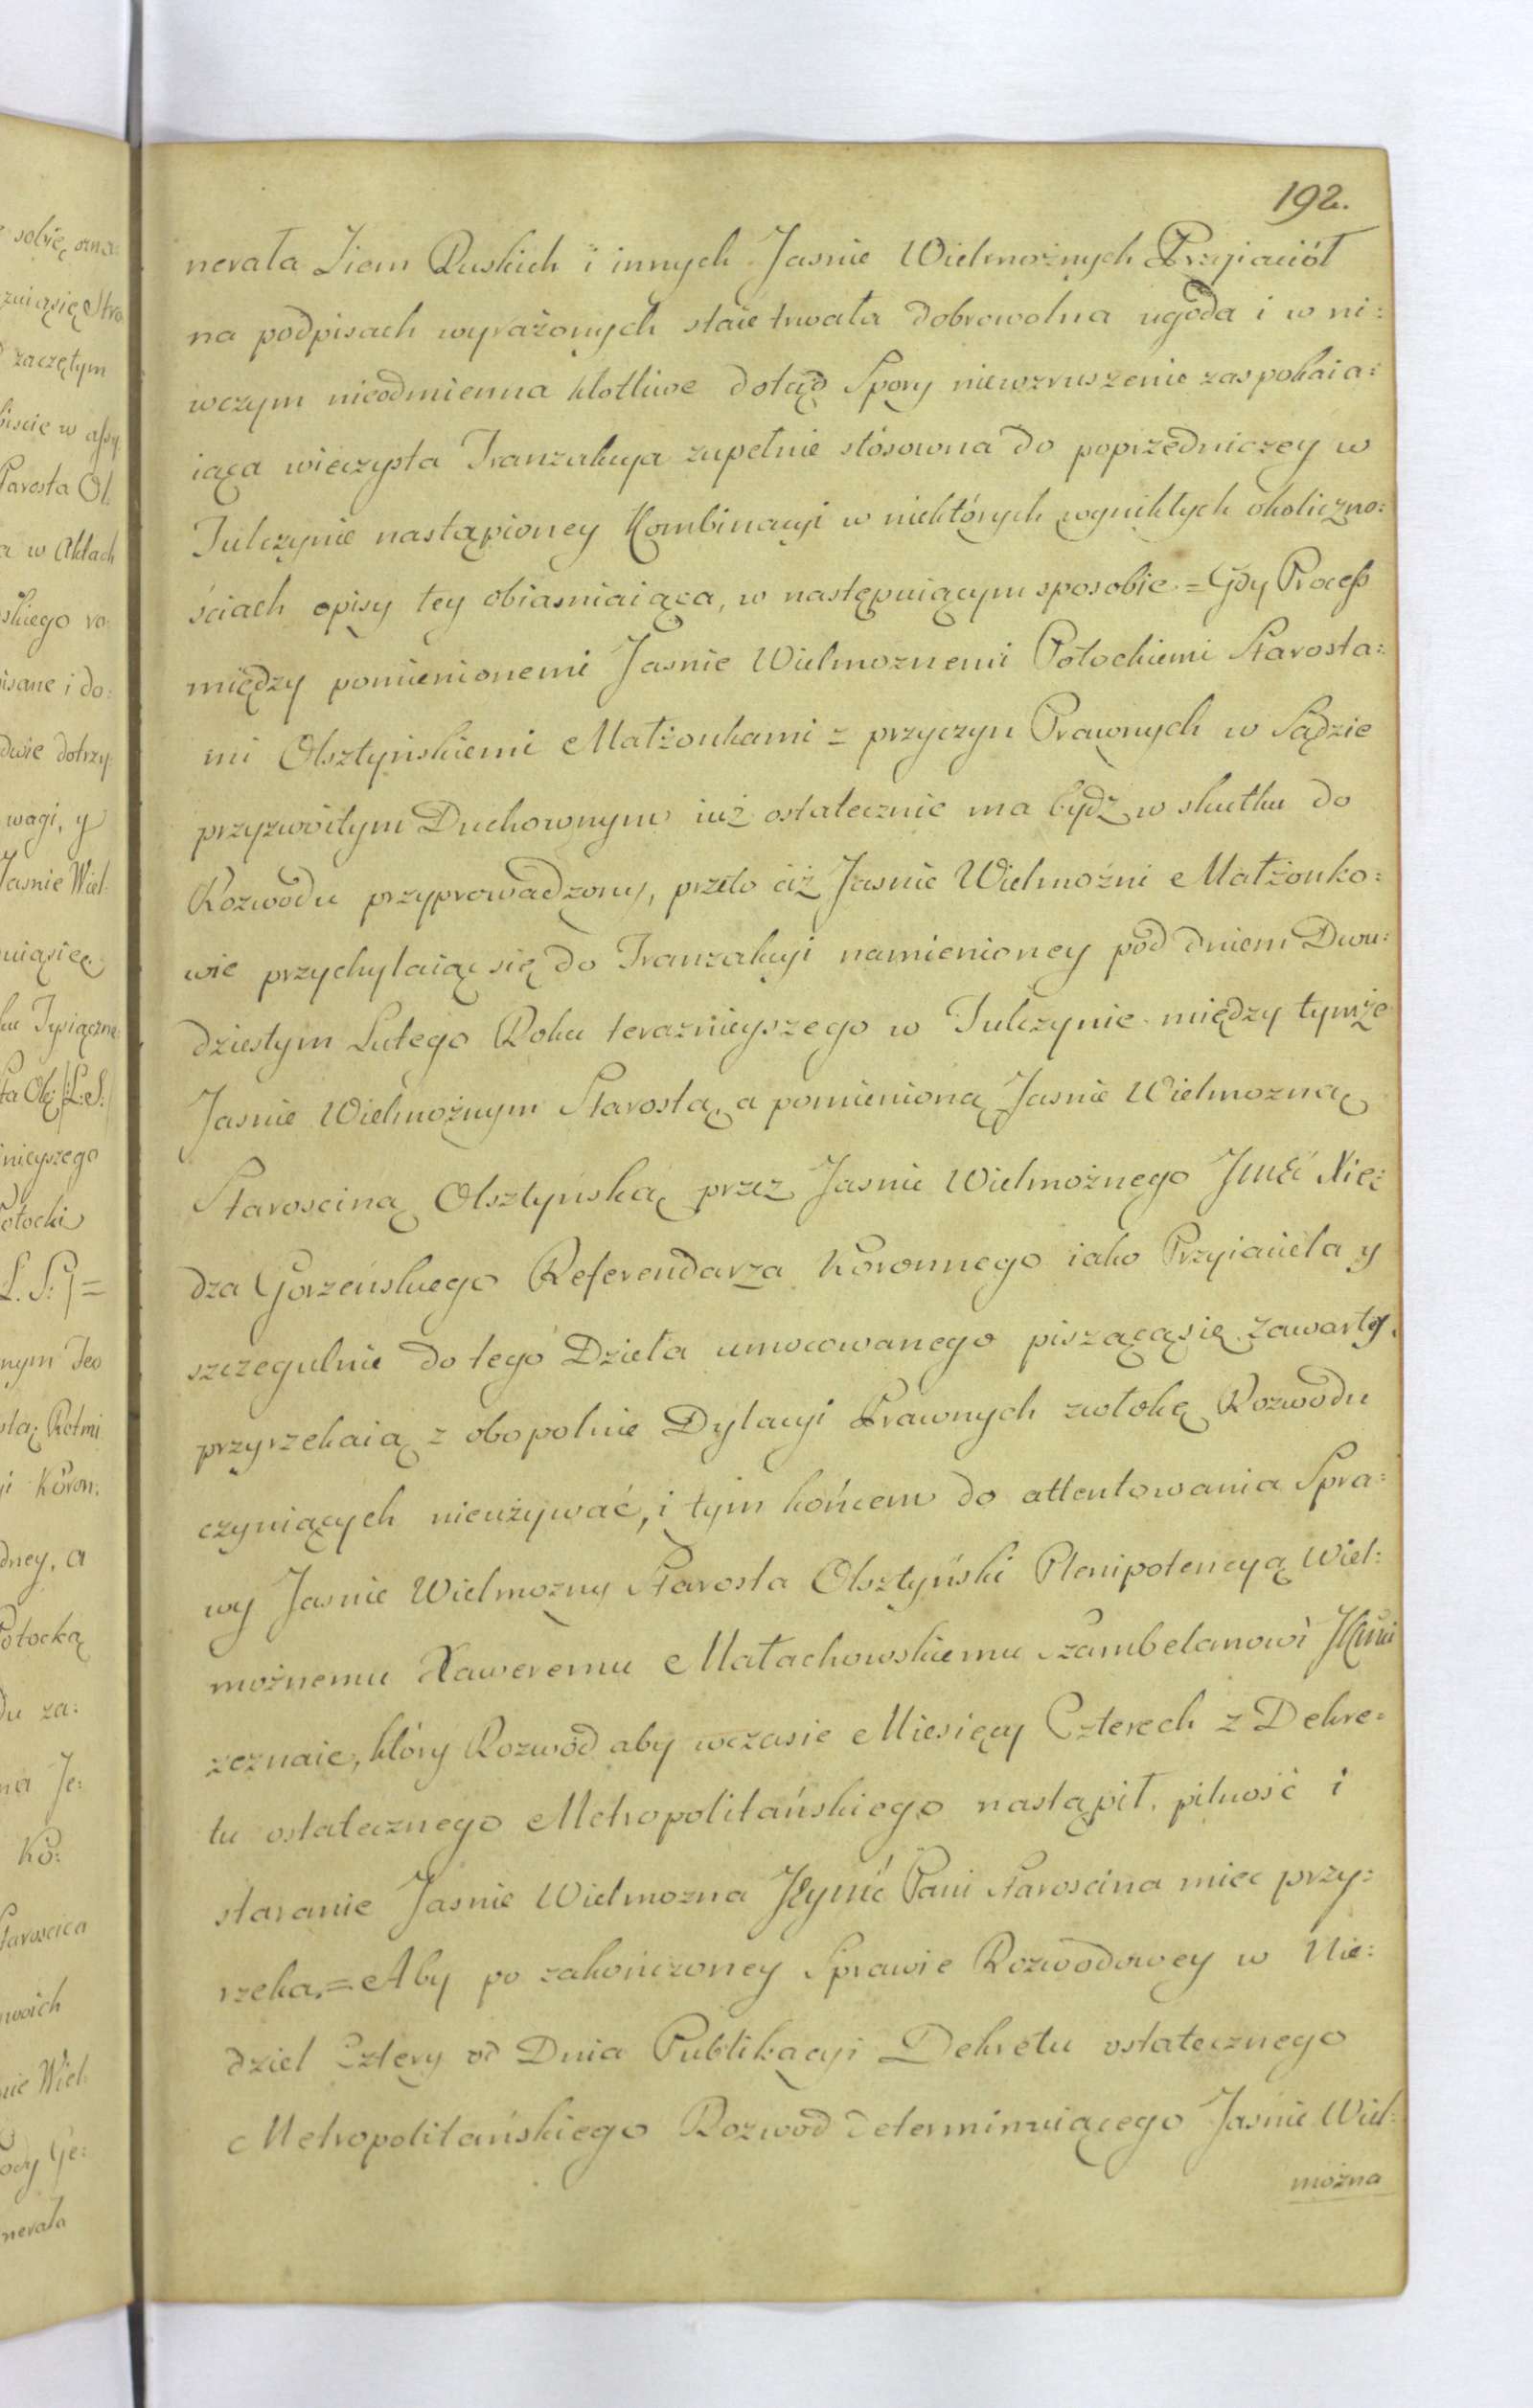 192.
nerała Ziem Ruskich i innych Jasnie Wielmożnych Przyiaciół
na podpisach wyrażonych staie trwała dobrowolna ugoda i w ni:
wczym nieodmienna kłotliwe dotąd Spory niewzruszenie zaspokaia:
iąca wieczysta Tranzakcya zupełnie stósowna do poprzedniczey w
Tulczynie nastąpioney Kombinacyi w niektórych wynikłych okoliczno:
ściach opisy tey obiasniaiąca, w następuiącym sposobie = Gdy Process
między pomienionemi Jasnie Wielmoznemi Potockiemi Starosta:
mi Olsztyńskiemi Małżonkami z przyczyn Prawnych w Sądzie
przyzwoitym Duchownym iuż ostatecznie ma bydz w skutku do
Rozwodu przyprowadzony, przeto ciż Jasnie Wielmożni Małżonko:
wie przychylaiąc się do Tranzakcyi namienioney pod dniem Dwu:
dziestym Lutego Roku terazńieyszego w Tulczynie między tymże
Jasnie Wielmożnym Starostą, a pomienioną Jasnie Wielmozną
Staroscina Olsztyńską przez Jasnie Wielmożnego Jmći Xię:
dza Gorzeńskiego Referendarza Koronnego iako Przyiaciela y
szczegulnie do tego Dzieła umocowanego piszącąsię zawartey,
przyrzekaią z obopolnie Dylacyi Prawnych zwłokę Rozwodu
czyniących nieużywać, i tym końcem do attentowania Spra:
wy Jasnie Wielmożny Starosta Olsztyński Plenipotencyą Wiel:
możnemu Xaweremu Małachowskiemu Szambelanowi
zeznaie, który Rozwód aby wczasie Miesięcy Czterech z Dekre:
tu ostatecznego Metropolitańskiego nastąpił, pilność i
staranie Jasnie Wielmozna Jeymć Pani Staroscina miec przy:
rzeka, = Aby po zakończoney Sprawie Rozwodowey w Nie:
dziel Cztery od Dnia Publikacyi Dekretu ostatecznego
Metropolitańskiego Rozwod determinuiącego Jasnie Wiel:
można